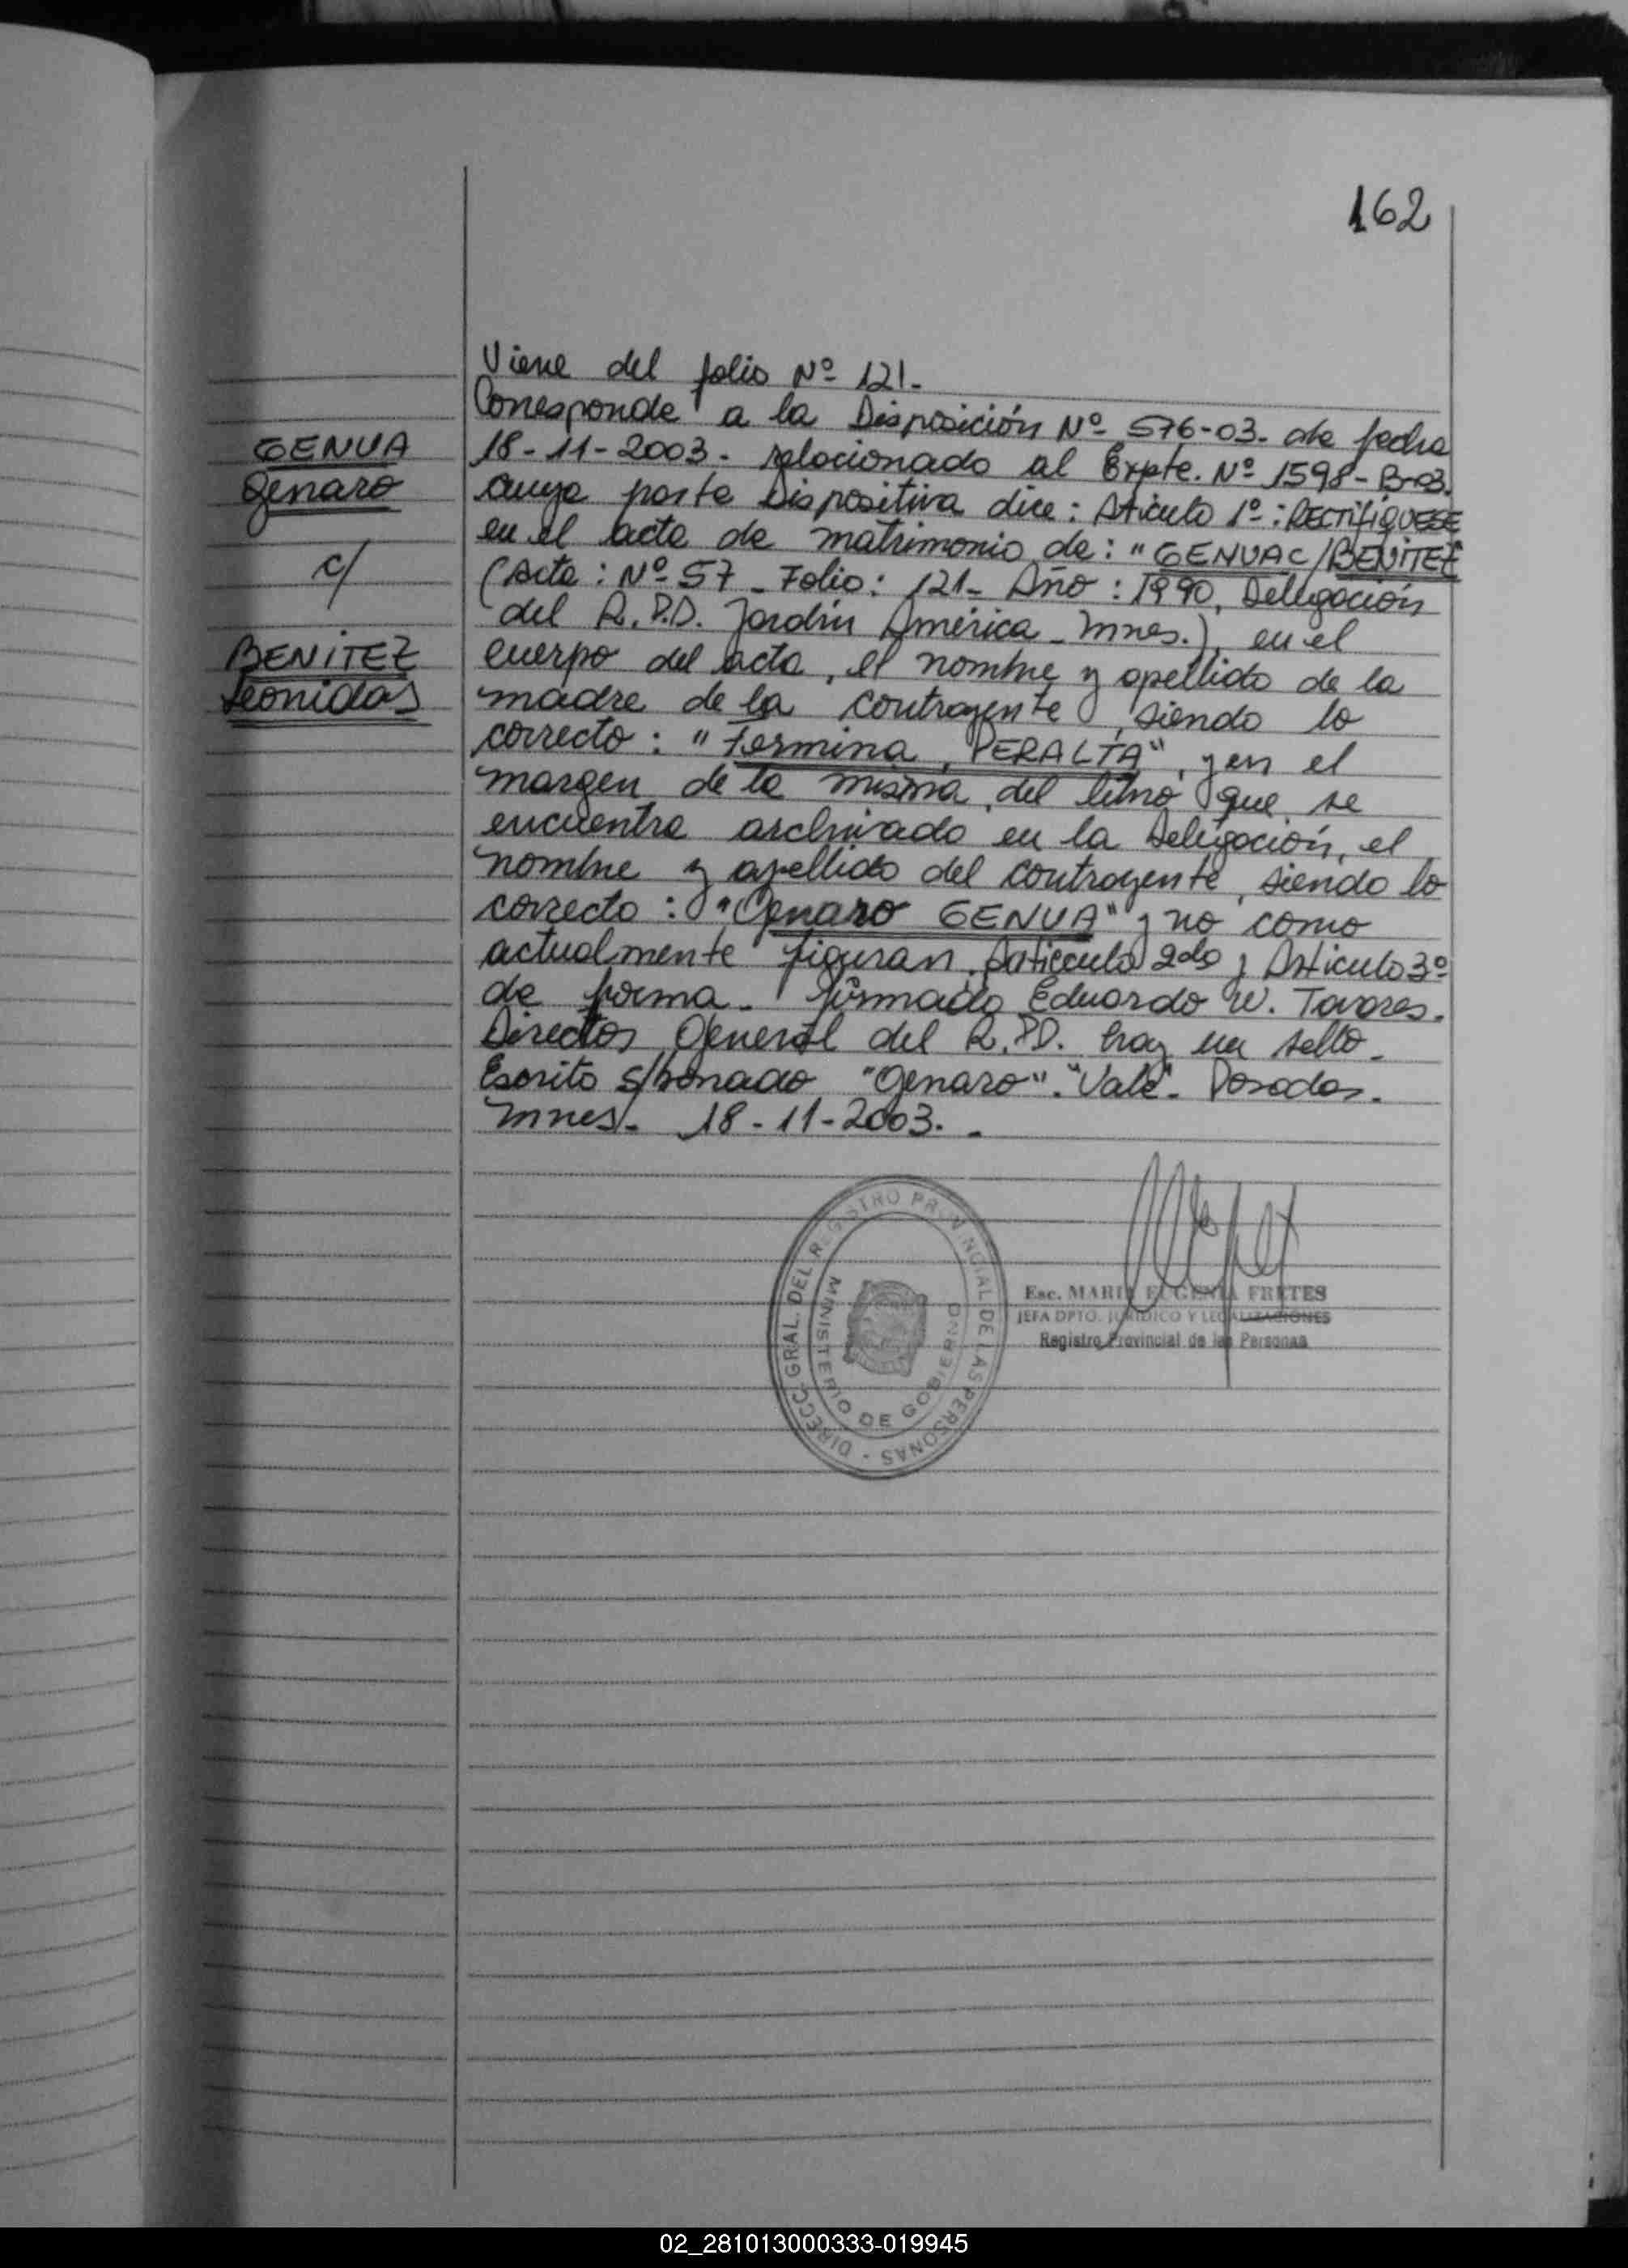 162
Viene del folio Nº 121.
Corresponde a la Disposición Nº 576-03. de fecha
18-11-2003. relacionado al Expte. Nº 1598-B-03.
cuya parte Dispositiva dice: Articulo 1º: RECTIFIQUESE
en el acta de matrimonio de: "GENUA C/BENITEZ
(Acta: Nº 57 - Folio: 121- Año: 1990, Delegación
del R.P.D. Jardín América - Mnes.), en el
cuerpo del acta, el nombre y apellido de la
madre de la contrayente, siendo lo
correcto: "Fermina, PERALTA", y en el
margen de la misma, del libro que se
encuentra archivado en la Delegación, el
nombre y apellido del contrayente, siendo lo
correcto: "Genaro GENUA" y no como
actualmente figuran. Articulo 2do y Articulo 3º
de forma. firmado Eduardo W. Tavares.
Director General del R.P.D. hay un sello.
Escrito s/borrado "Genaro". "Vale". Posadas.
Mnes. 18-11-2003.
GENUA
Genaro
c/
BENITEZ
Leonidas
DIRECC. GRAL. DEL REGISTRO PROVINCIAL DE LAS PERSONAS -
MINISTERIO DE GOBIERNO
Esc. MARIA EUGENIA FRETES
JEFA DPTO. JURIDICO Y LEGALIZACIONES
Registro Provincial de las Personas
02_281013000333-019945